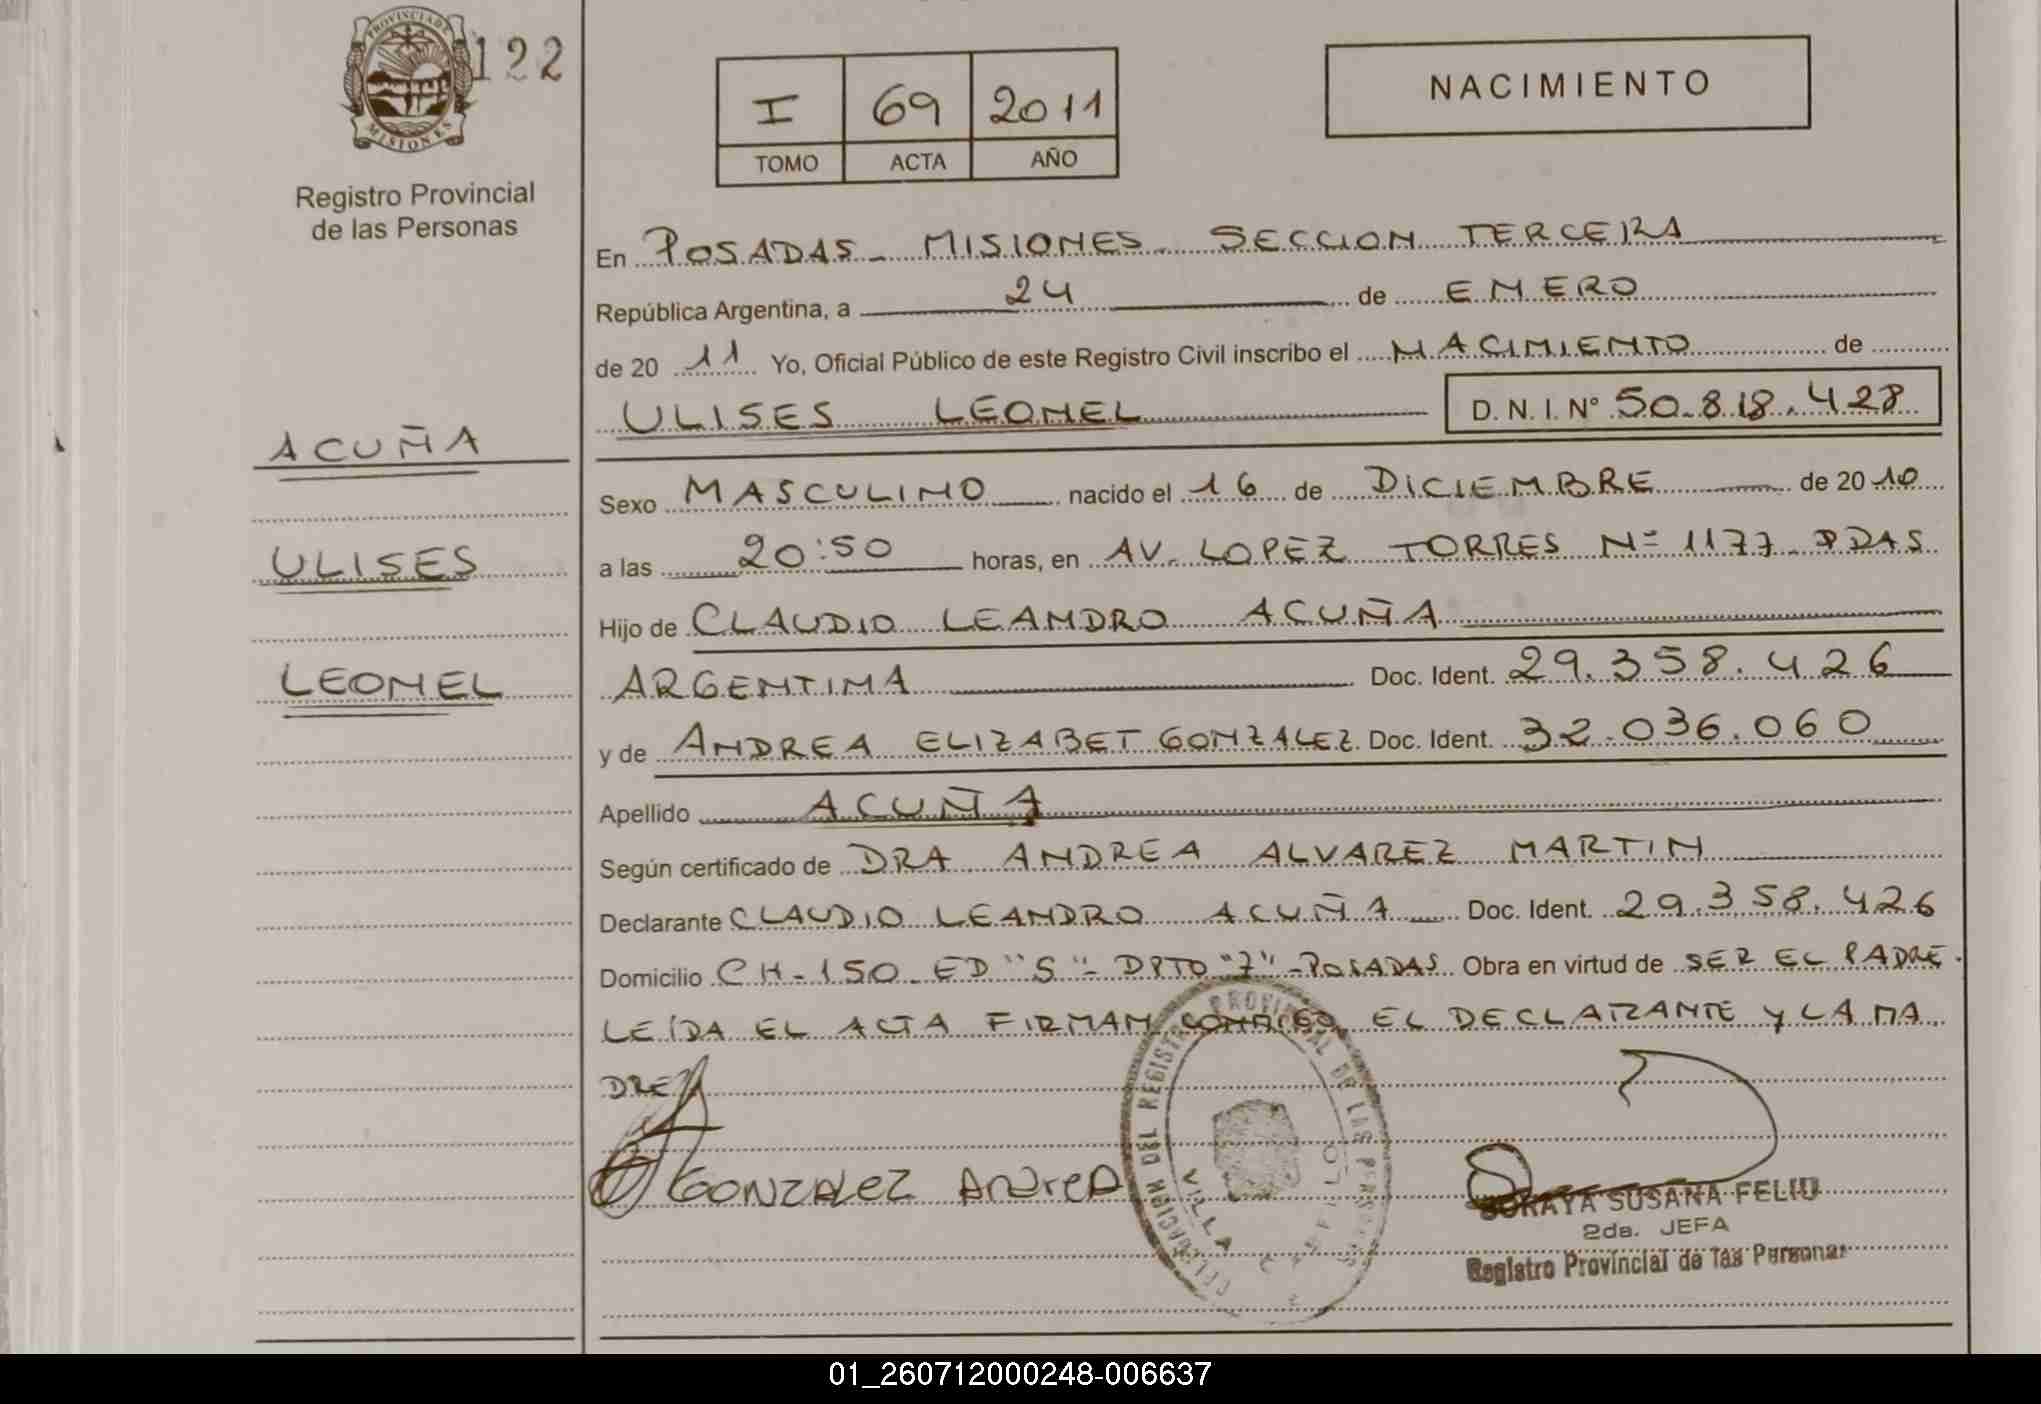 PROVINCIA DE
MISIONES
122
Registro Provincial
de las Personas
I 69 2011
TOMO ACTA AÑO
NACIMIENTO
En POSADAS - MISIONES - SECCION TERCERA
República Argentina, a 24 de ENERO
de 20 11 Yo, Oficial Público de este Registro Civil inscribo el NACIMIENTO de
ULISES LEONEL D. N. I. N° 50.818.428
ACUÑA
ULISES
LEONEL
Sexo MASCULINO nacido el 16 de DICIEMBRE de 2010
a las 20:50 horas, en AV. LOPEZ TORRES Nº 1177 PDAS
Hijo de CLAUDIO LEANDRO ACUÑA
ARGENTINA Doc. Ident. 29.358.426
y de ANDREA ELIZABET GONZALEZ Doc. Ident. 32.036.060
Apellido ACUÑA
Según certificado de DRA ANDREA ALVAREZ MARTIN
Declarante CLAUDIO LEANDRO ACUÑA Doc. Ident. 29.358.426
Domicilio CH-150 ED "S" - DPTO "7" - POSADAS Obra en virtud de SER EL PADRE.
LEÍDA EL ACTA FIRMAN CONMIGO EL DECLARANTE Y LA MA
DRE
GONZALEZ AndreA
DELEGACION DEL REGISTRO PROVINCIAL DE LAS PERSONAS
VILLA
SORAYA SUSANA FELIU
2da. JEFA
Registro Provincial de las Personas
01_260712000248-006637